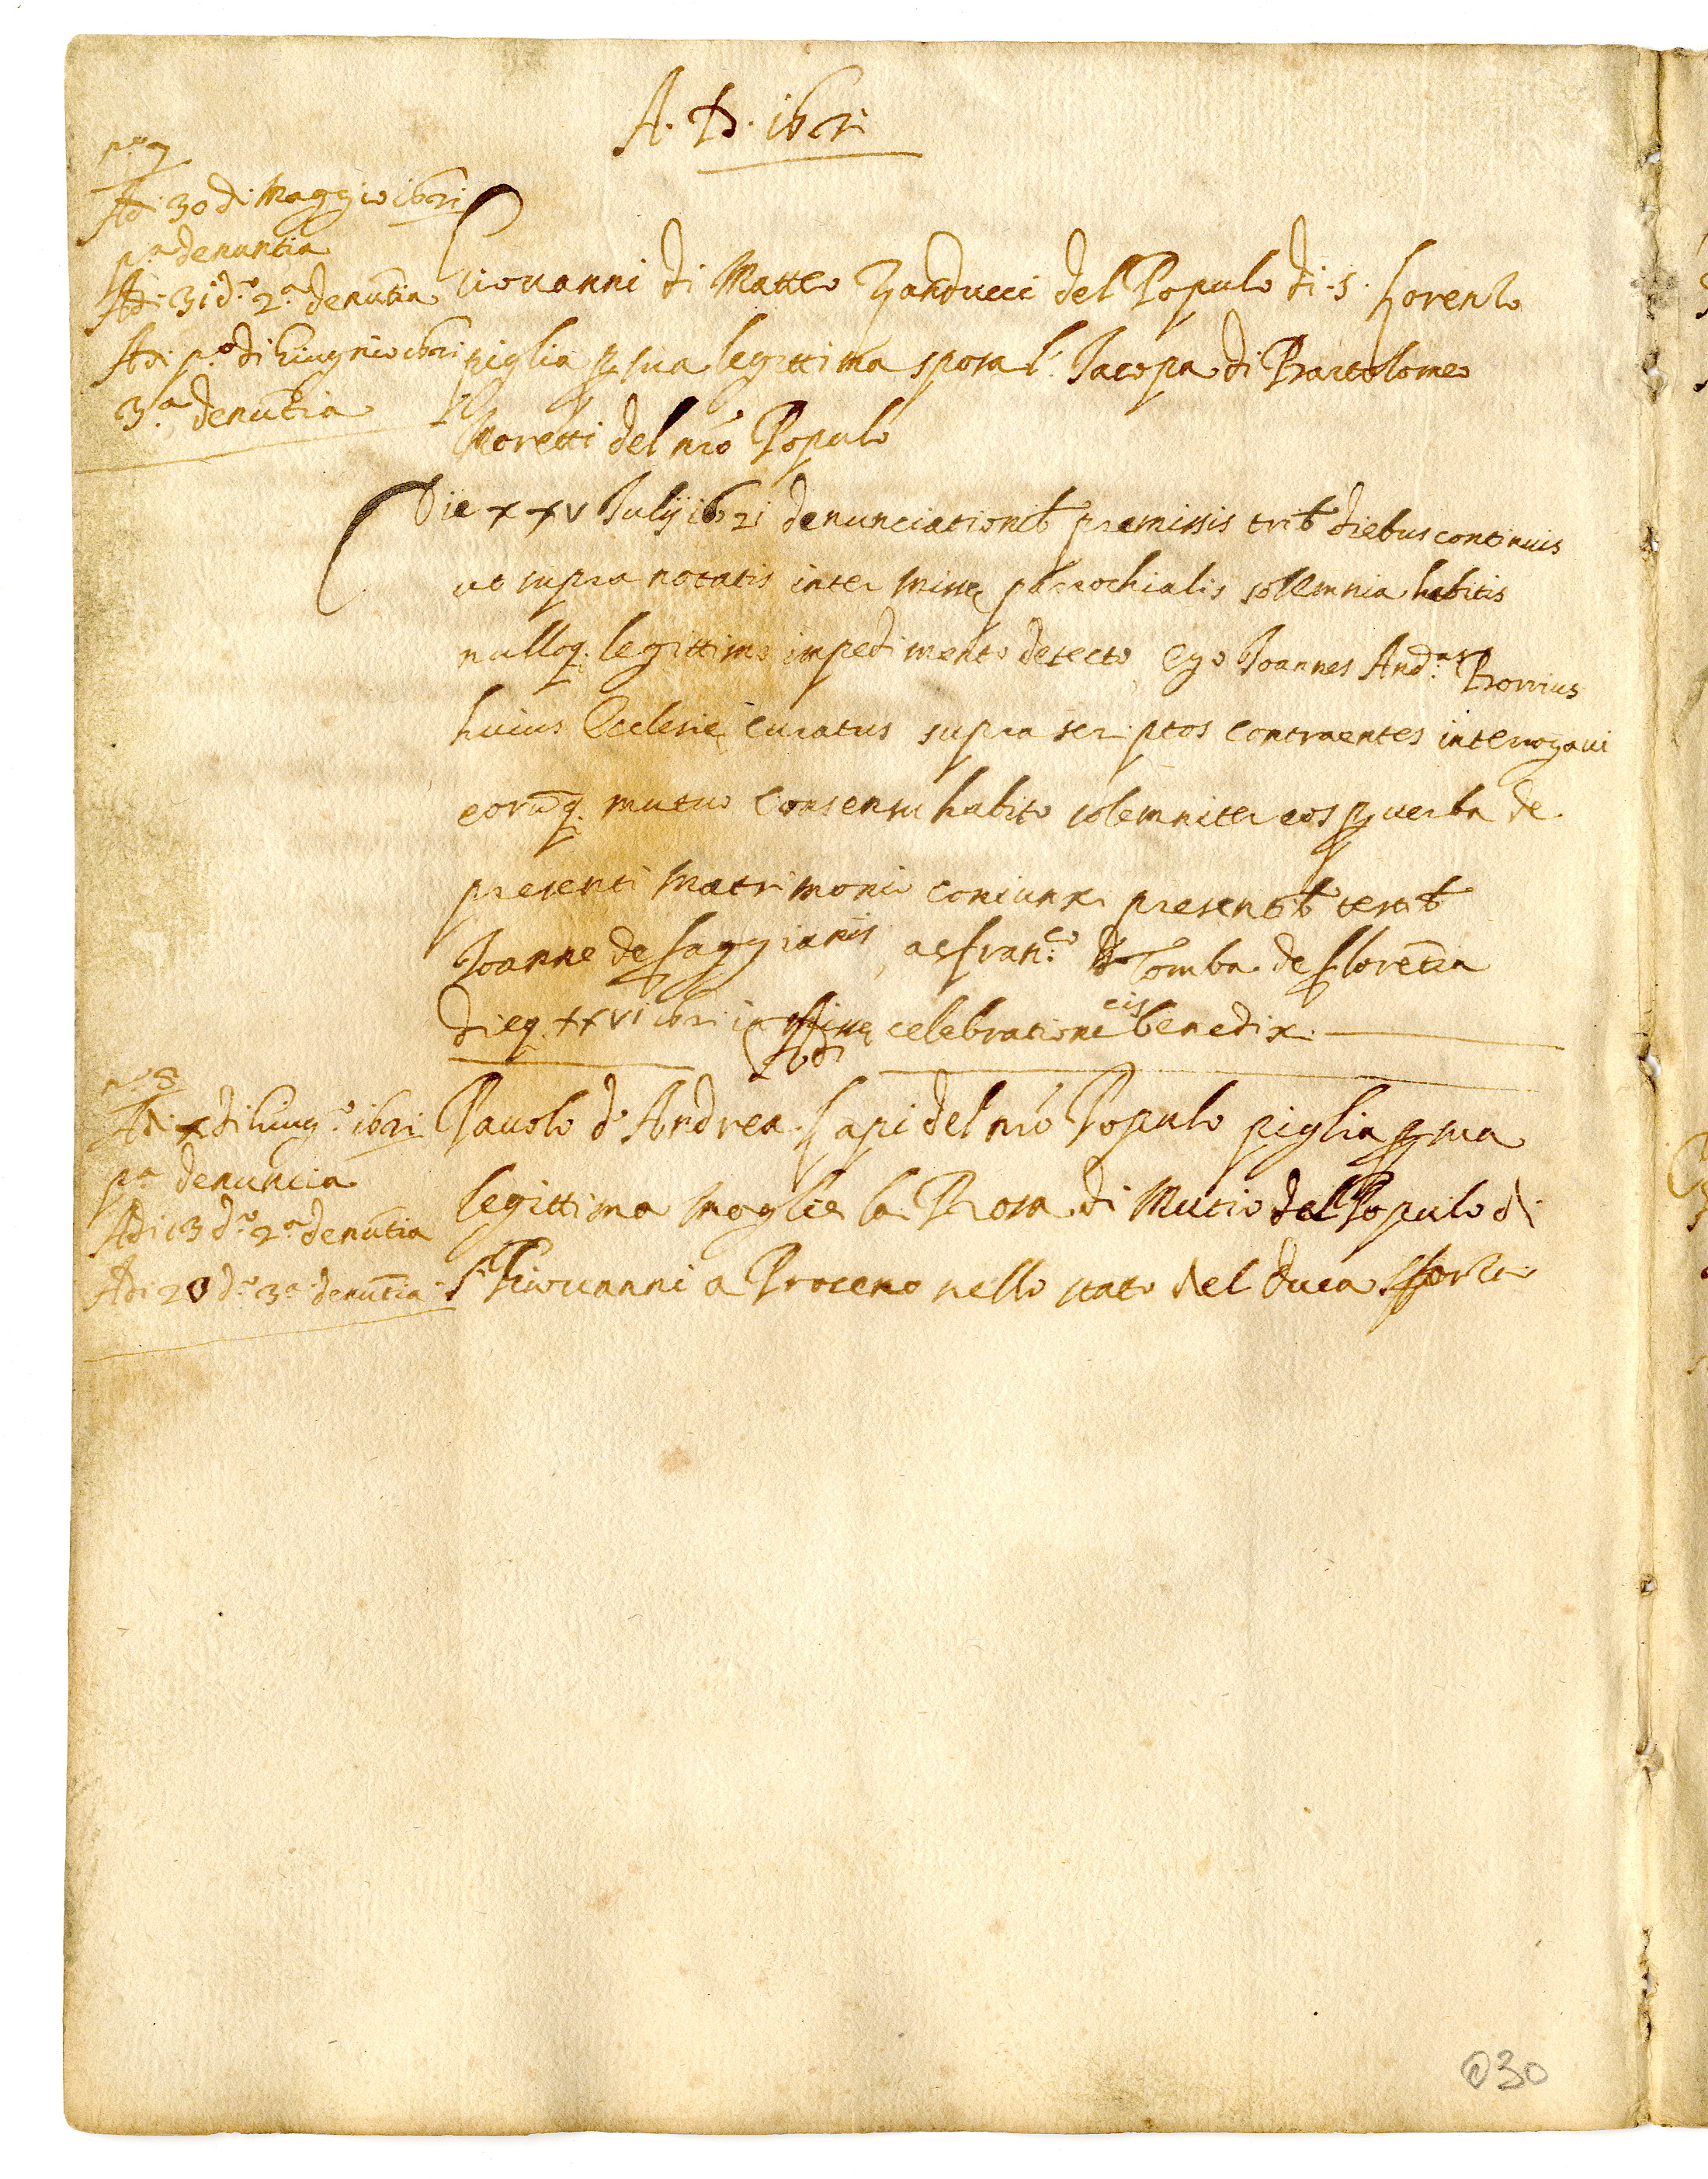 A. D. 1621
nº 7
Adi 30 di Maggio 1621
pª denuntia
Adi 31 dº 2ª denūtia
Adi pº di Giugnio 1621
3ª denūtia
Giouanni di Matteo Zanducci del Populo di S. Lorenzo
piglia ꝑ sua legittima sposa l. Jacopa di Bartolomeo
Moretti del nro Populo
Die xxv Julij 1621 denunciationib premissis trib diebus continuis
ut supra notatis inter Missę parrochialis solemnia habitis
nulloq. legittimo impedimento detecto ego Joannes Andªs
huius Ecclesię curatus supra scriptos contraentes interrogaui
eorūq. mutuo consensu habito solemniter eos ꝑ uerba de
presenti matrimonio coniunxi presentib testib
Joanne de faggianis, ac franᶜᵒ Tomba de florētia
dieq. xxvi 1621 in Missę celebratione eis benedixi
nº 8
Adi x di Giugº 1621
pª denuncia
Adi 13 dº 2ª denūtia
Adi 20 dº 3ª denūtia
Pauolo d'Andrea Lapi del nro Populo piglia ꝑ sua
legittima moglie la Rosa di Mutio del Populo di
S. Giouanni a Proceno nello stato del Duca Sforza
30